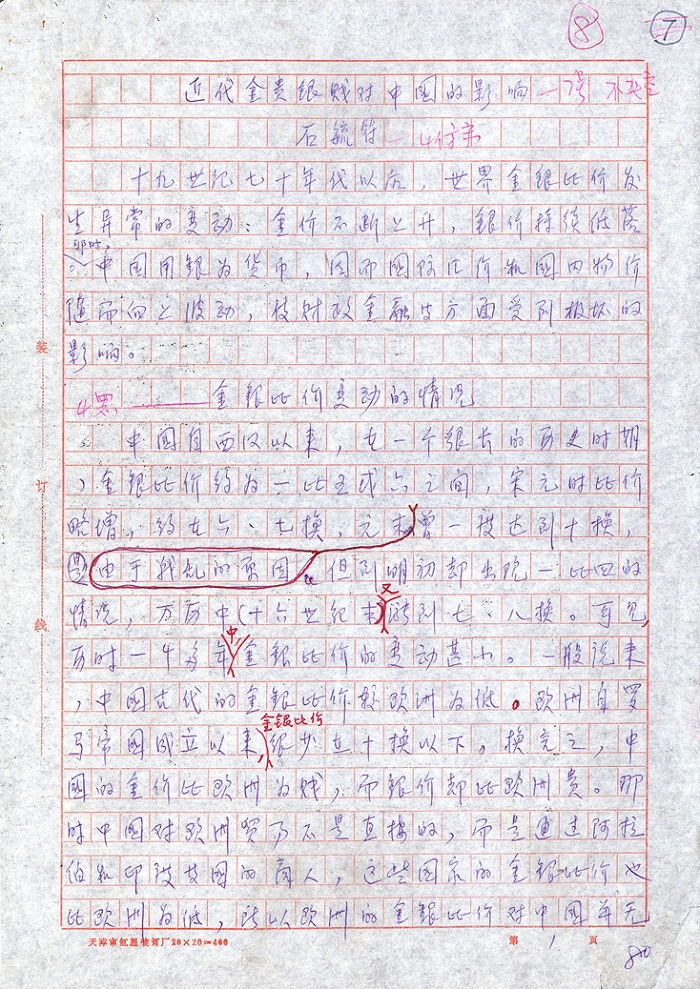 ⑧ ⑦
近代金貴銀贱对中国的影响 — 2号
石毓符 — 4仿
十九世纪七十年代以后，世界金銀比价发
生异常的变动：金价不断上升，銀价持续低落
。那时，中国用銀为货币，因而國际汇价和國内物价
随而向上波动，使财政金融等方面受到极坏的
影响。
4黑 金銀比价变动的情况
中国自西汉以来，在一个很长的历史时期
，金銀比价约为一比五或六之间，宋元时比价
略增，约在六、七换，元末曾一度达到十换，
由于战乱的原因。但到明初却出现一比四的
情况，万历中（十六世纪末）又涨到七、八换。可见，
历时一千多年中，金銀比价的变动甚小。一般说来
，中国古代的金銀比价较欧洲为低。欧洲自罗
马帝国成立以来，金銀比价很少在十换以下，换言之，中
國的金价比欧洲为贱，而銀价却比欧洲貴。那
时中国对欧洲贸易不是直接的，而是通过阿拉
伯和印度等国的商人，这些国家的金銀比价也
比欧洲为低，所以欧洲的金銀比价对中国并无
装
订
线
天津市红星装订厂20×20=400
第 1 頁